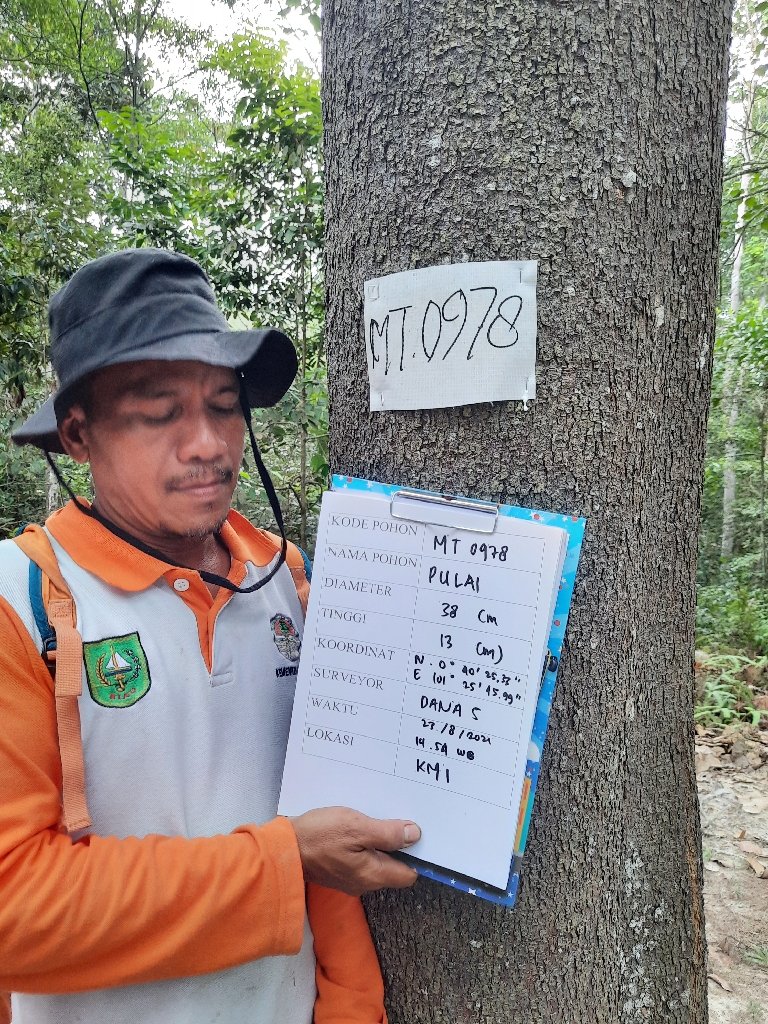 MT.0978
KODE POHON MT 0978
NAMA POHON PULAI
DIAMETER 38 cm
TINGGI 13 (m)
KOORDINAT N . 0° 40' 25.35"
E 101° 25' 45.99"
SURVEYOR DANA S
WAKTU 27/8/2021
14.54 WIB
LOKASI KMI
RIAU